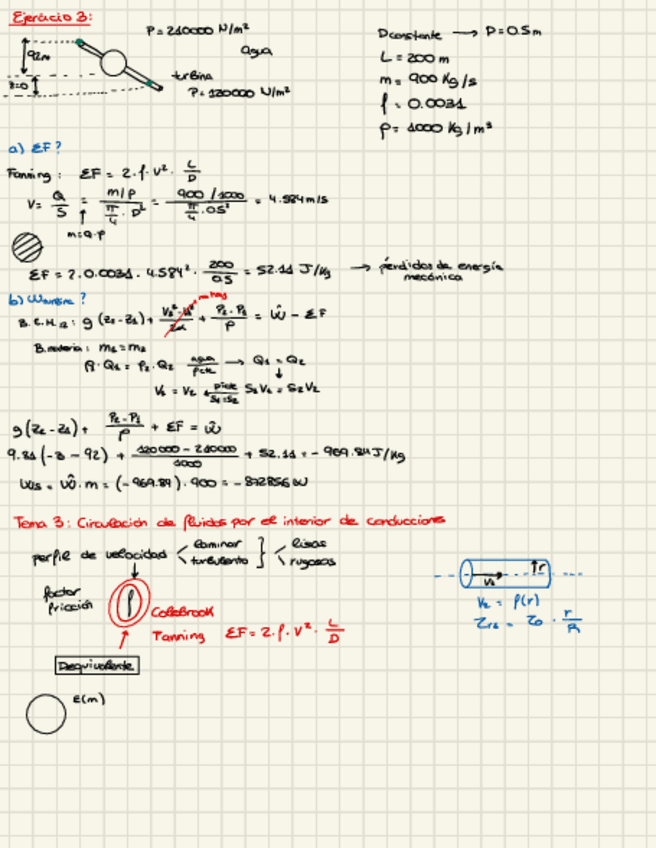 Ejercicio 3:
P = 210000 N/m²
agua
92m
z=0
turbina
P = 120000 N/m²
D constante → D = 0.5m
L = 200 m
m = 900 Kg/s
f = 0.0031
ρ = 1000 Kg/m³
a) ΣF?
Fanning: ΣF = 2·f·v²· L/D
V = Q/S = (m/ρ)/(π/4 · D²) = (900/1000)/(π/4 · 0.5²) = 4.584 m/s
m = Q·ρ
ΣF = 2·0.0031·4.584²· 200/0.5 = 52.11 J/Kg → pérdidas de energía mecánica
b) ?
no hay
B.E.M.12: g(z2-z1) + + (P2-P1)/ρ = ŵ - ΣF
B. materia: m1 = m2
ρ1·Q1 = ρ2·Q2 agua ρcte → Q1 = Q2
V1 = V2 S1=S2 S1V1 = S2V2
g(z2-z1) + (P2-P1)/ρ + ΣF = ŵ
9.81(-3 - 92) + (120000 - 210000)/1000 + 52.11 = -969.84 J/Kg
= ŵ·m = (-969.84)·900 = -872856 W
Tema 3: Circulación de fluidos por el interior de conducciones
perfil de velocidad laminar turbulento } lisas rugosas
factor fricción f Colebrook
Fanning ΣF = 2·f·v²· L/D
Dequivalente
ε(m)
r
Vz
Vz = f(r)
τrz = τ0 · r/R